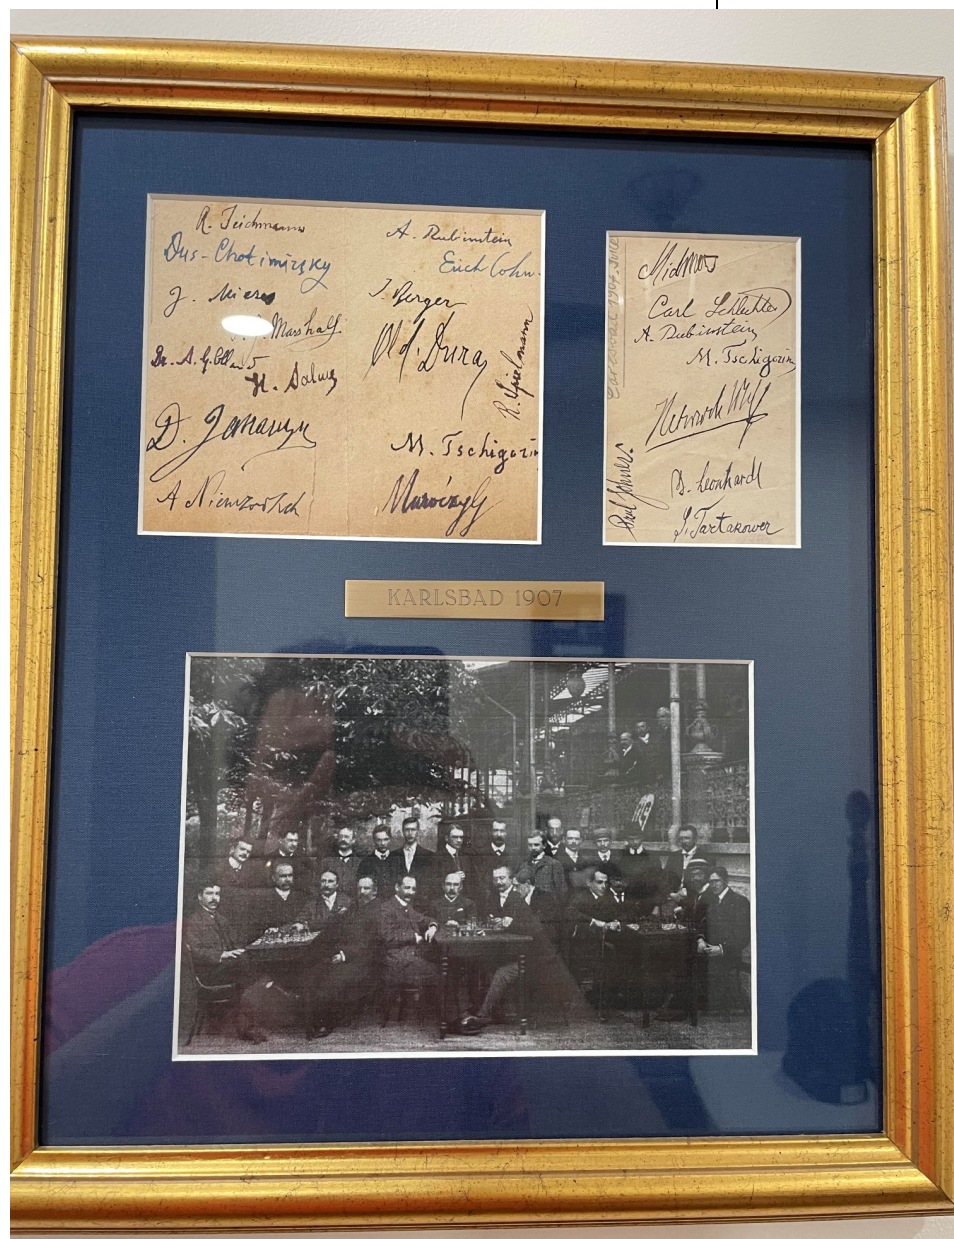 R. Teichmann
Dus-Chotimirsky
J. Mieses
Marshall
Dr. A. G. Olland
H. Salwe
D. Janowsky
A Niemzowitsch
A. Rubinstein
Erich Cohn.
J. Berger
Old. Duras
R. Spielmann
M. Tschigorin
Maróczy G
Vidmar
Carl Schlechter
A. Rubinstein
M. Tschigorin
Heinrich Wolf
P. Leonhardt
S. Tartakower
Paul Johner
KARLSBAD 1907